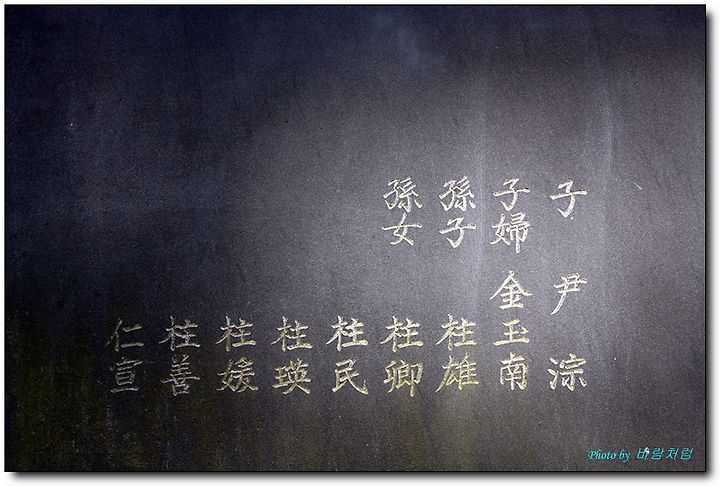 子 尹淙
子婦 金玉南
孫子 柱雄
孫女 柱卿
柱民
柱瑛
柱媛
柱善
仁宣
Photo by 바람처럼